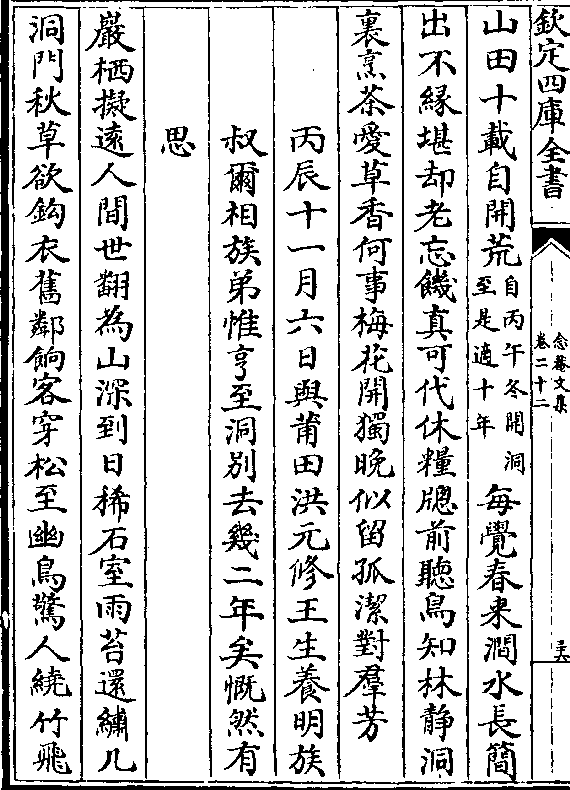 欽定四庫全書
念菴文集
卷二十二
山田十載自開荒自丙午冬開洞至是適十年每覺春來澗水長簡
出不緣堪却老忘饑真可代休糧牕前聽鳥知林静洞
裏烹茶愛草香何事梅花開獨晚似留孤潔對羣芳
丙辰十一月六日與莆田洪元修王生養明族
叔爾相族弟惟亨至洞别去幾二年矣慨然有
思
巖栖擬遠人間世翻為山深到日稀石室雨苔還繡几
洞門秋草欲鈎衣舊鄰餉客穿松至幽鳥驚人繞竹飛